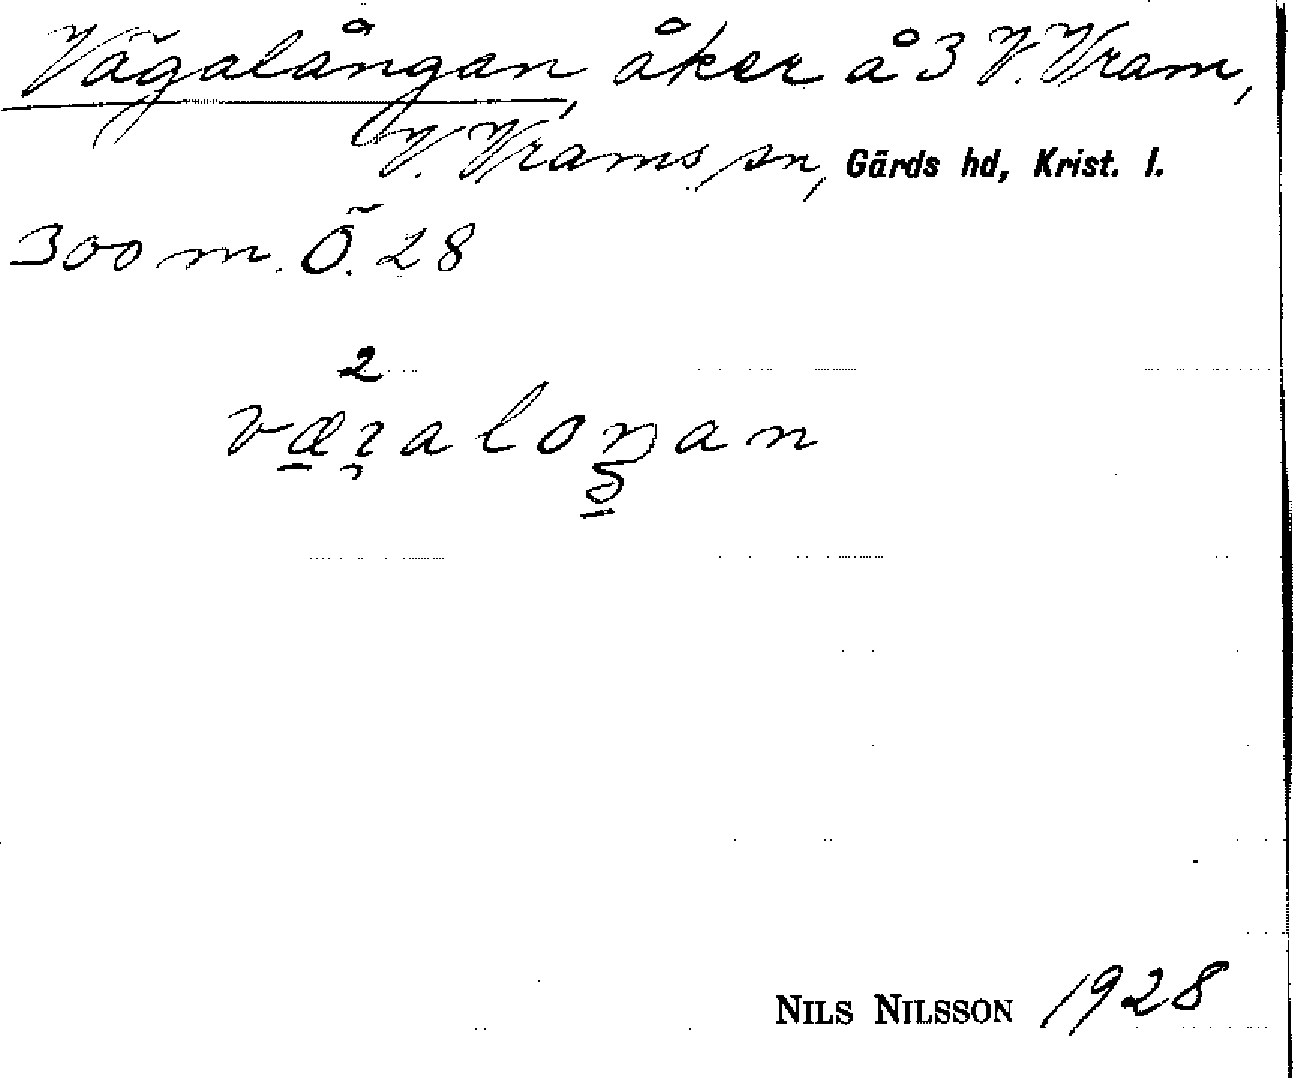 Vägalången, åker å 3 V. Vram,
V. Vrams sn, Gärds hd, Krist. l.
300 m. Ö. 28
2
væɿaloŋan
NILS NILSSON 1928